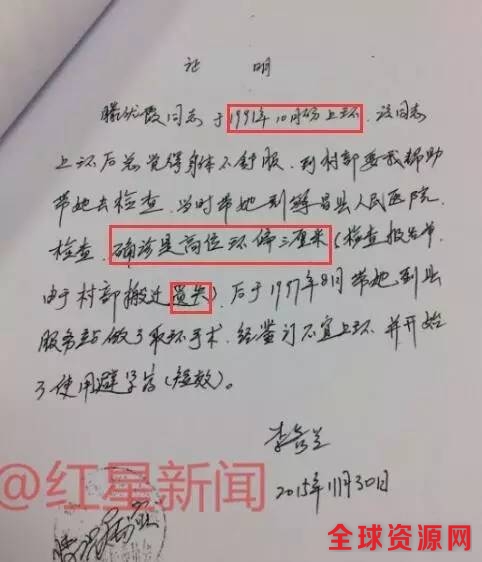 证 明
同志于1991年10月份上环,该同志
上环后总觉得身体不舒服,到村部要我帮助
带她去检查,当时带她到县人民医院
检查,确诊是高位环偏三厘米(检查报告单
由于村部搬迁遗失),后于1997年8月带她到县
服务站做了取环手术,经鉴订不宜上环,并开始
了使用避孕药(短效)。
李兰
2015年11月30日
@红星新闻
全球资源网